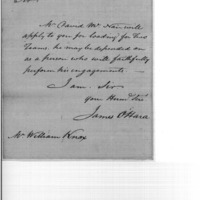 Sir
Mr David Mc Nair will
apply to you for loading for his
Teams. he may be depended on
as a person who will faithfully
perform his engagements —
I am Sir
your Hum Svt
James O'Hara
Mr William Knox